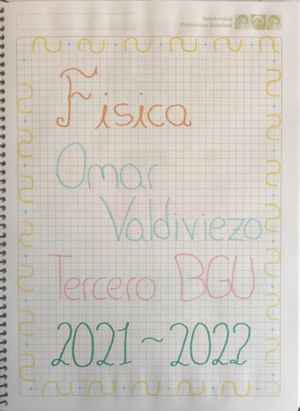 Universidad
Politécnica Salesiana
Fisica
Omar
Valdiviezo
Tercero BGU
2021~2022